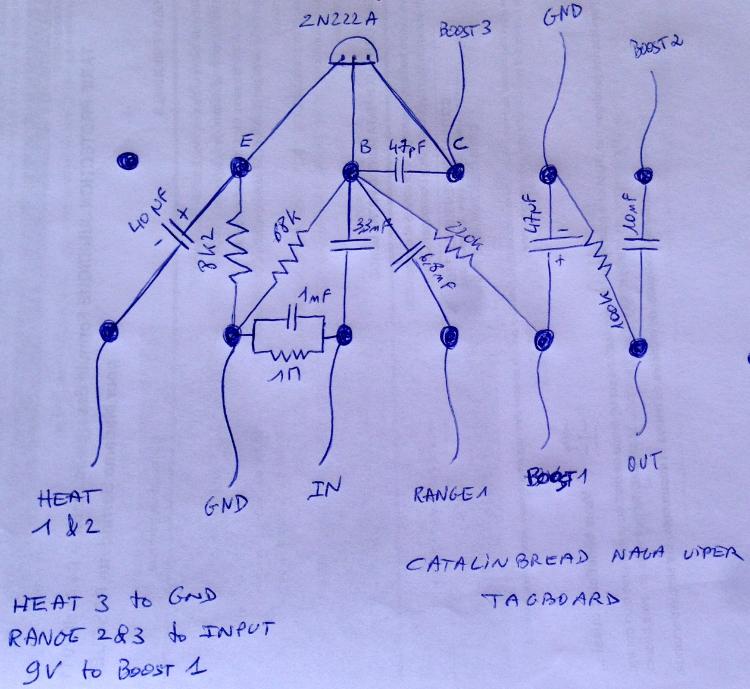 2N222A
BOOST 3
GND
BOOST 2
E
B
47pF
C
40µF
+
-
8k2
68k
33nF
220k
6,8nF
47µF
-
+
100k
10nF
1nF
1M
HEAT
1 & 2
GND
IN
RANGE 1
BOOST 1
OUT
CATALINBREAD NAGA VIPER
TAGBOARD
HEAT 3 to GND
RANGE 2&3 to INPUT
9V to BOOST 1